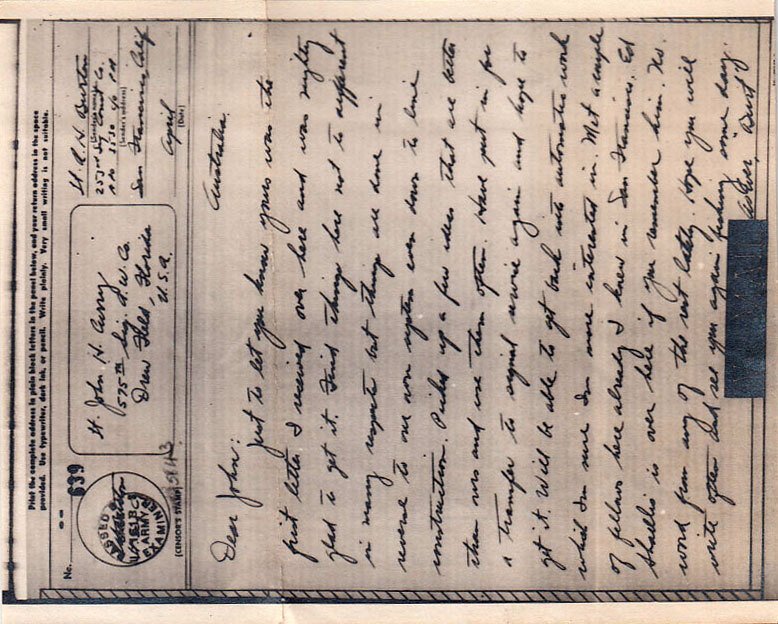 Print the complete address in plain block letters in the panel below, and your return address in the space
provided. Use typewriter, dark ink, or pencil. Write plainly. Very small writing is not suitable.
No.
639
PASSED BY
U.S.
ARMY
EXAMINER
(CENSOR'S STAMP)
Lt. John H. Curry
575th Sig. A.W. Co.
Drew Field, Florida
U.S.A.
Lt. R H Burton
(Sender's name)
San Francisco, Calif
(Sender's address)
April
(Date)
Australia.
Dear John:
Just to let you know yours was the
first letter I received over here and was mighty
glad to get it. Find things here not to different
in many respects but things are done in
reverse to our own system even down to line
construction. Picked up a few ideas that are better
than ours and use them often. Have put in for
a transfer to signal service again and hope to
get it. Will be able to get back into automatic work
which I'm sure I'm more interested in. Met a couple
of fellows here already I knew in San Francisco. Ed
is over here if you remember him. No
word from any of the rest lately. Hope you will
write often and see you again fishing some day.